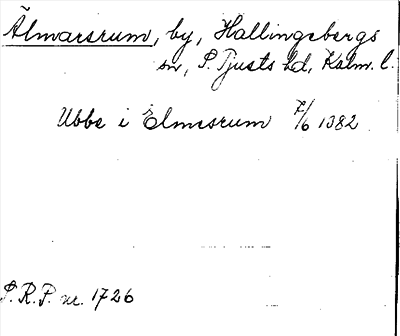 Älmarsrum, by, Hallingebergs
sn, S. Tjusts hd, Kalm. l.
Ubbe i Elmesrum 7/6 1382
S.R.P. nr. 1726